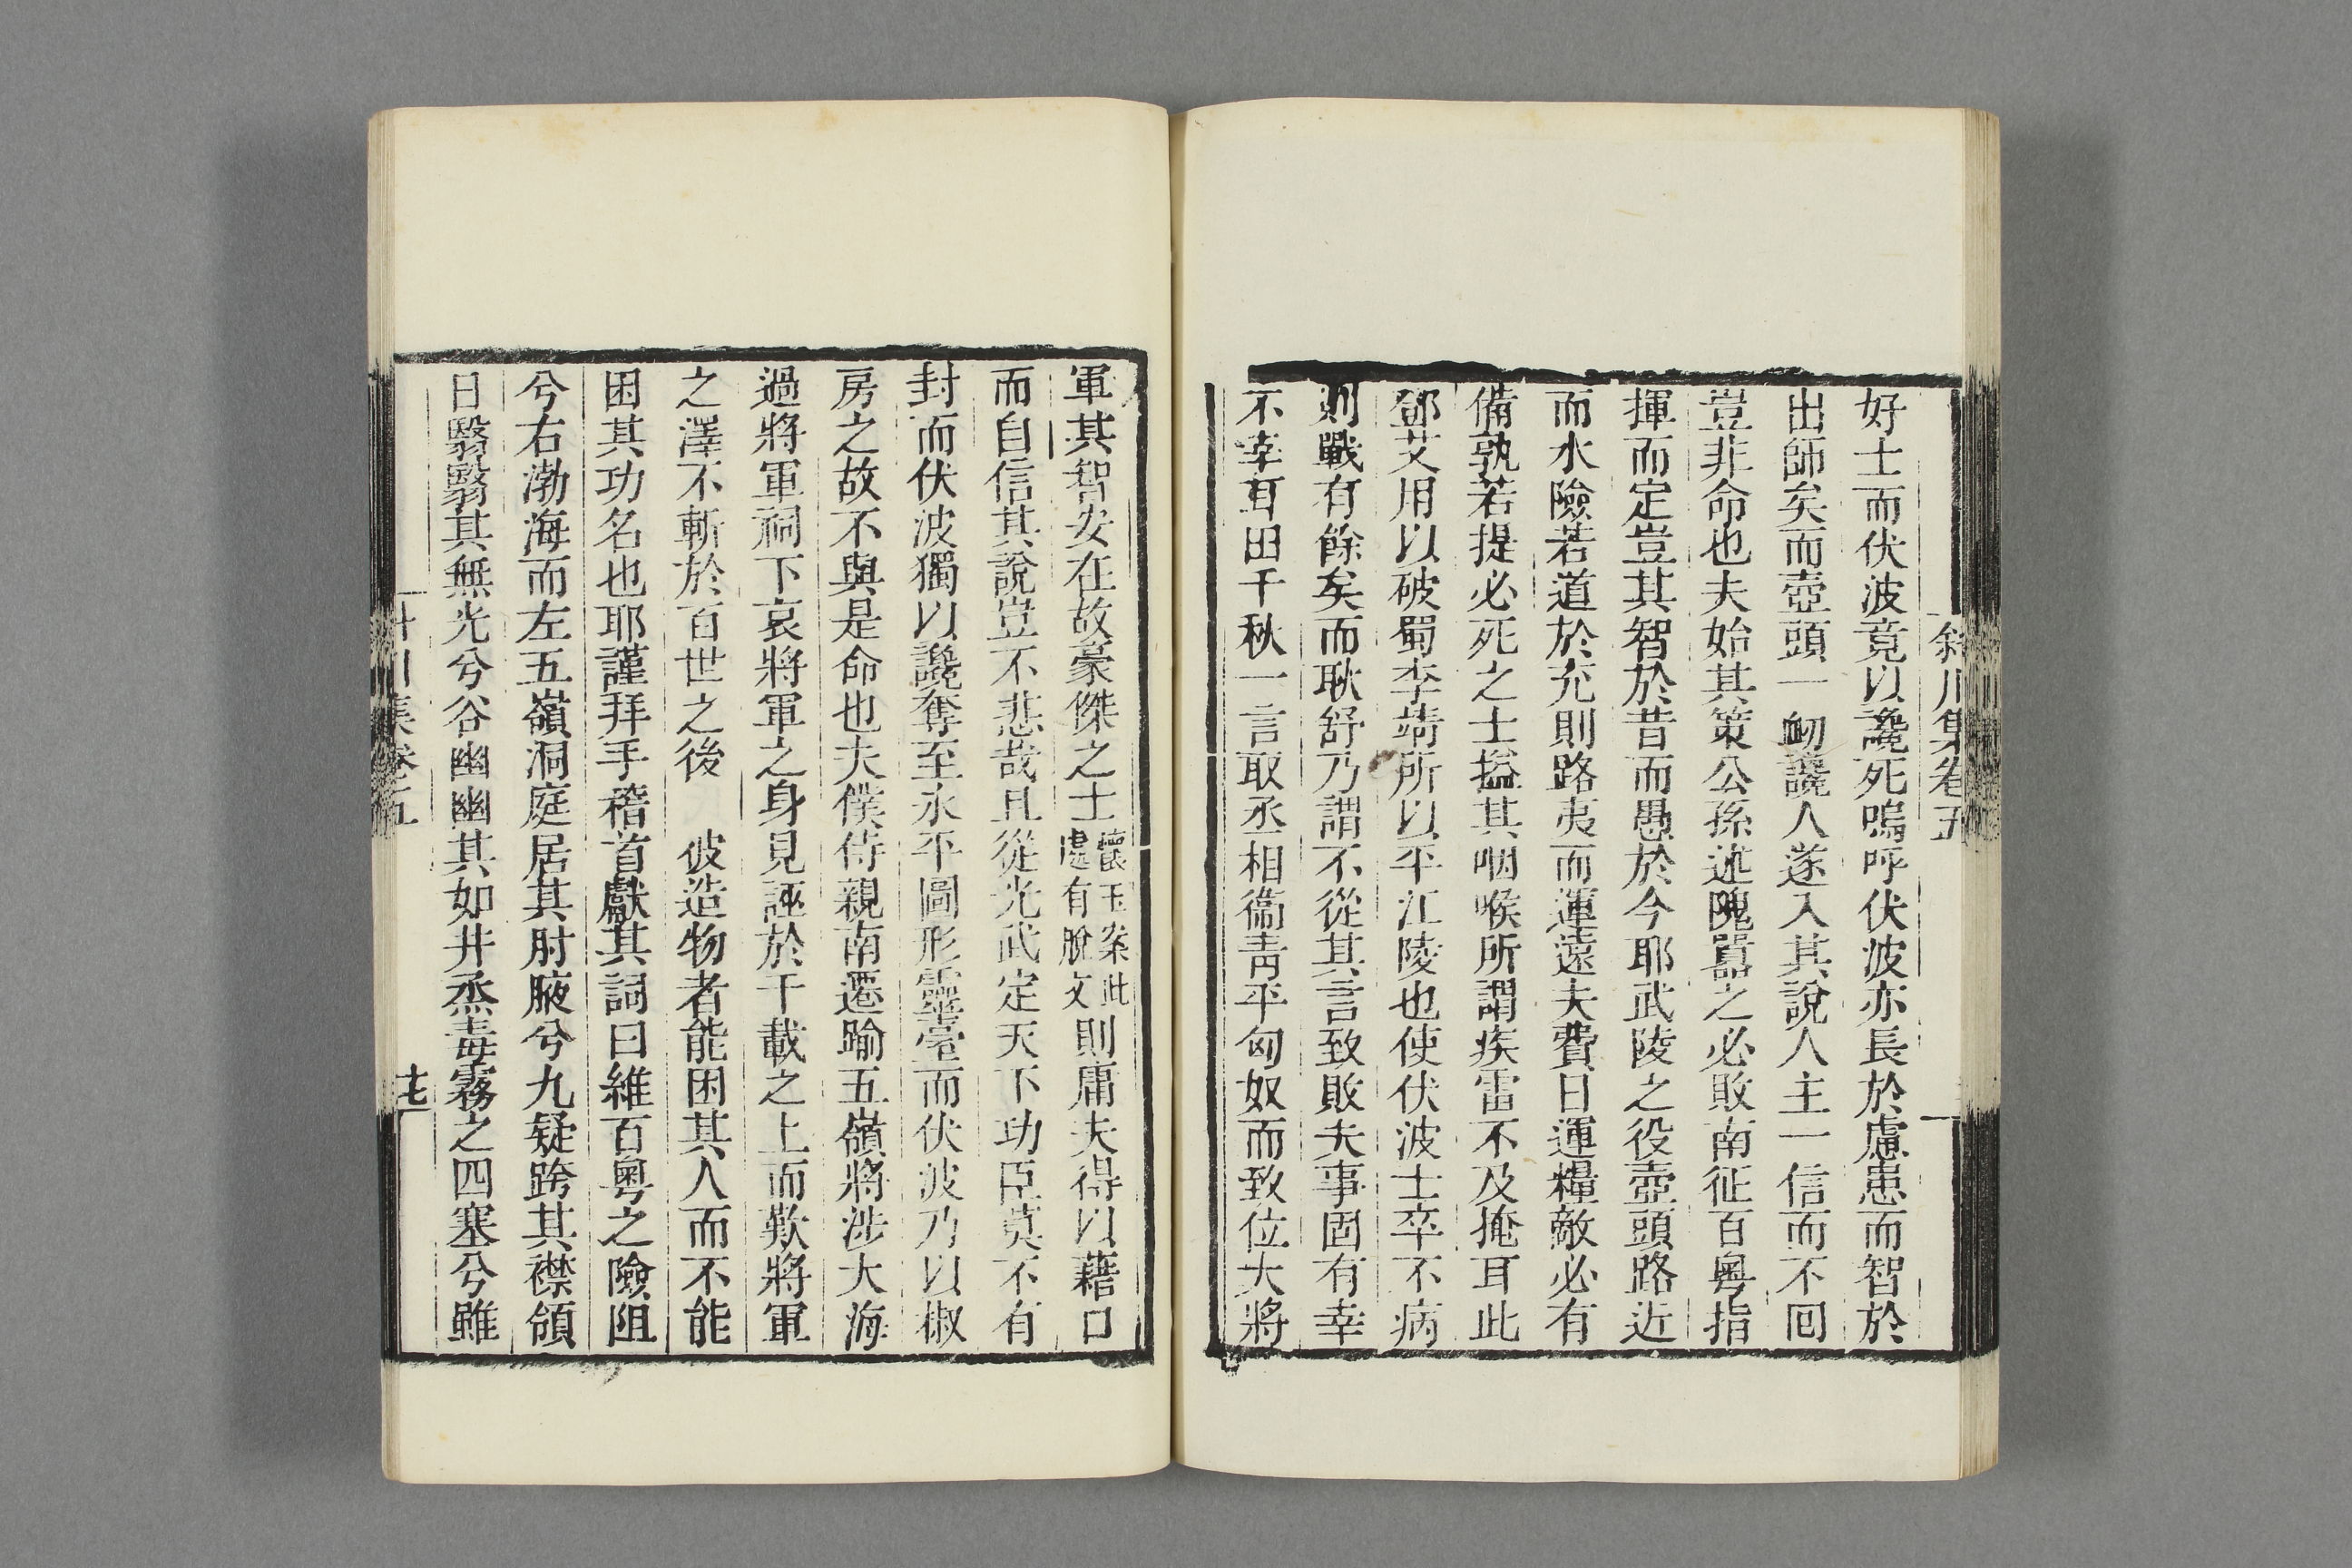 斜川集卷五
好士而伏波竟以讒死嗚呼伏波亦長於慮患而智於
出師矣而壺頭一衂讒人遂入其說人主一信而不回
豈非命也夫始其策公孫述隗囂之必敗南征百粵指
揮而定豈其智於昔而愚於今耶武陵之役壺頭路近
而水險若道於充則路夷而運遠夫費日運糧敵必有
備孰若提必死之士搤其咽喉所謂疾雷不及掩耳此
鄧艾用以破蜀李靖所以平江陵也使伏波士卒不病
則戰有餘矣而耿舒乃謂不從其言致敗夫事固有幸
不幸耳田千秋一言取丞相衞靑平匈奴而致位大將
軍其智安在故豪傑之士懷玉案此處有脫文則庸夫得以藉口
而自信其說豈不悲哉且從光武定天下功臣莫不有
封而伏波獨以讒奪至永平圖形靈臺而伏波乃以椒
房之故不與是命也夫僕侍親南遷踰五嶺將涉大海
過將軍祠下哀將軍之身見誣於千載之上而歎將軍
之澤不斬於百世之後 彼造物者能困其人而不能
困其功名也耶謹拜手稽首獻其詞曰維百粵之險阻
兮右渤海而左五嶺洞庭居其肘腋兮九疑跨其襟領
日翳翳其無光兮谷幽幽其如井烝毒霧之四塞兮雖
斜川集卷五
十七